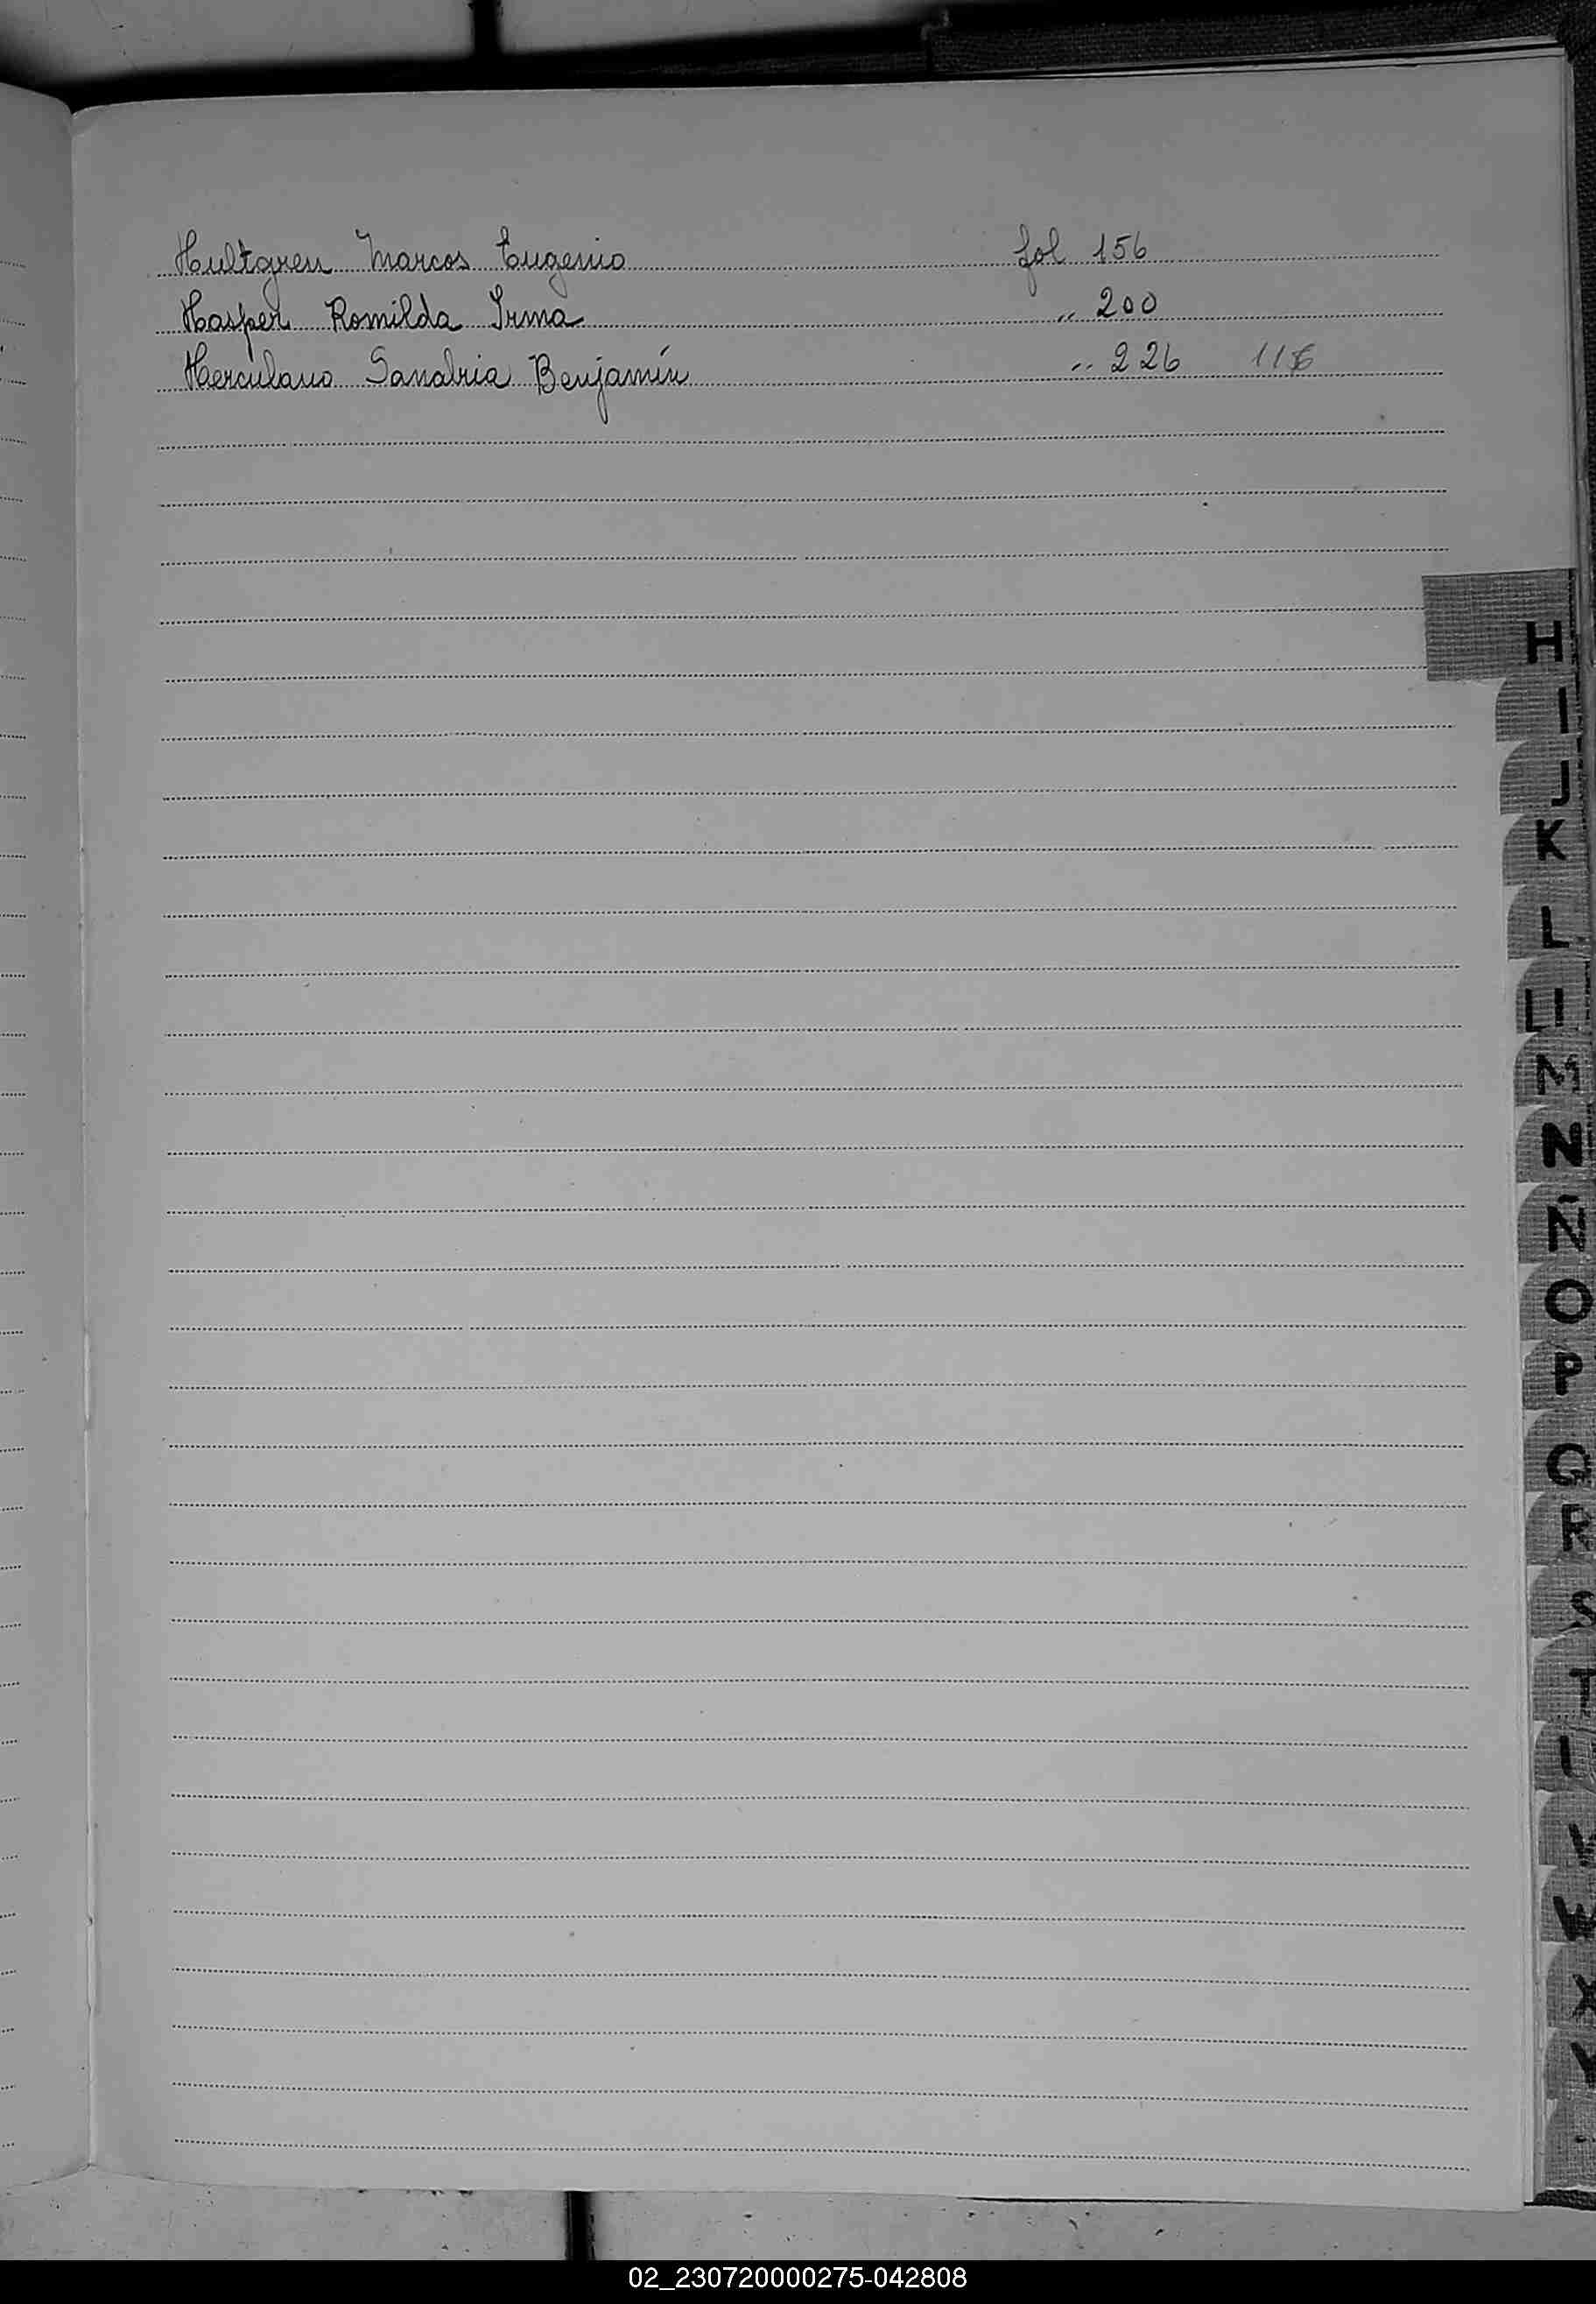 Hultgren Marcos Eugenio fol 156
Hasper Romilda Irma " 200
Herculano Sanabria Benjamín " 226
H
I
J
K
L
Ll
M
N
Ñ
O
P
Q
R
S
T
V
W
X
Y
02_230720000275-042808